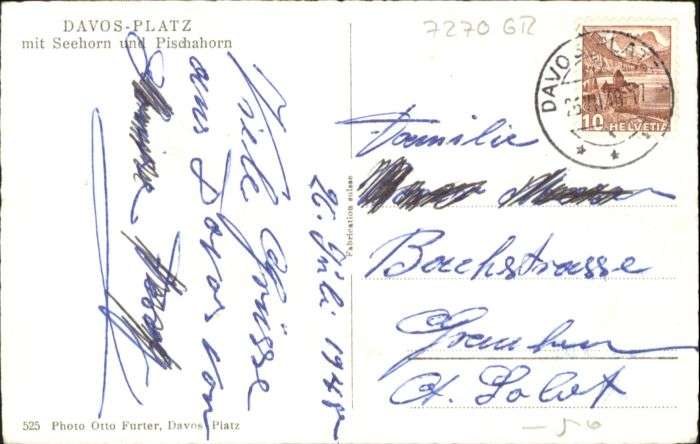 DAVOS-PLATZ
mit Seehorn und Pischahorn
7270 GR
DAVOS PLATZ
10 HELVETIA
26. Juli 1948
Viele Grüsse
aus Davos von
Fabrication suisse
Familie
Bachstrasse
Grenchen
Kt. Solot
525 Photo Otto Furter, Davos Platz
-50